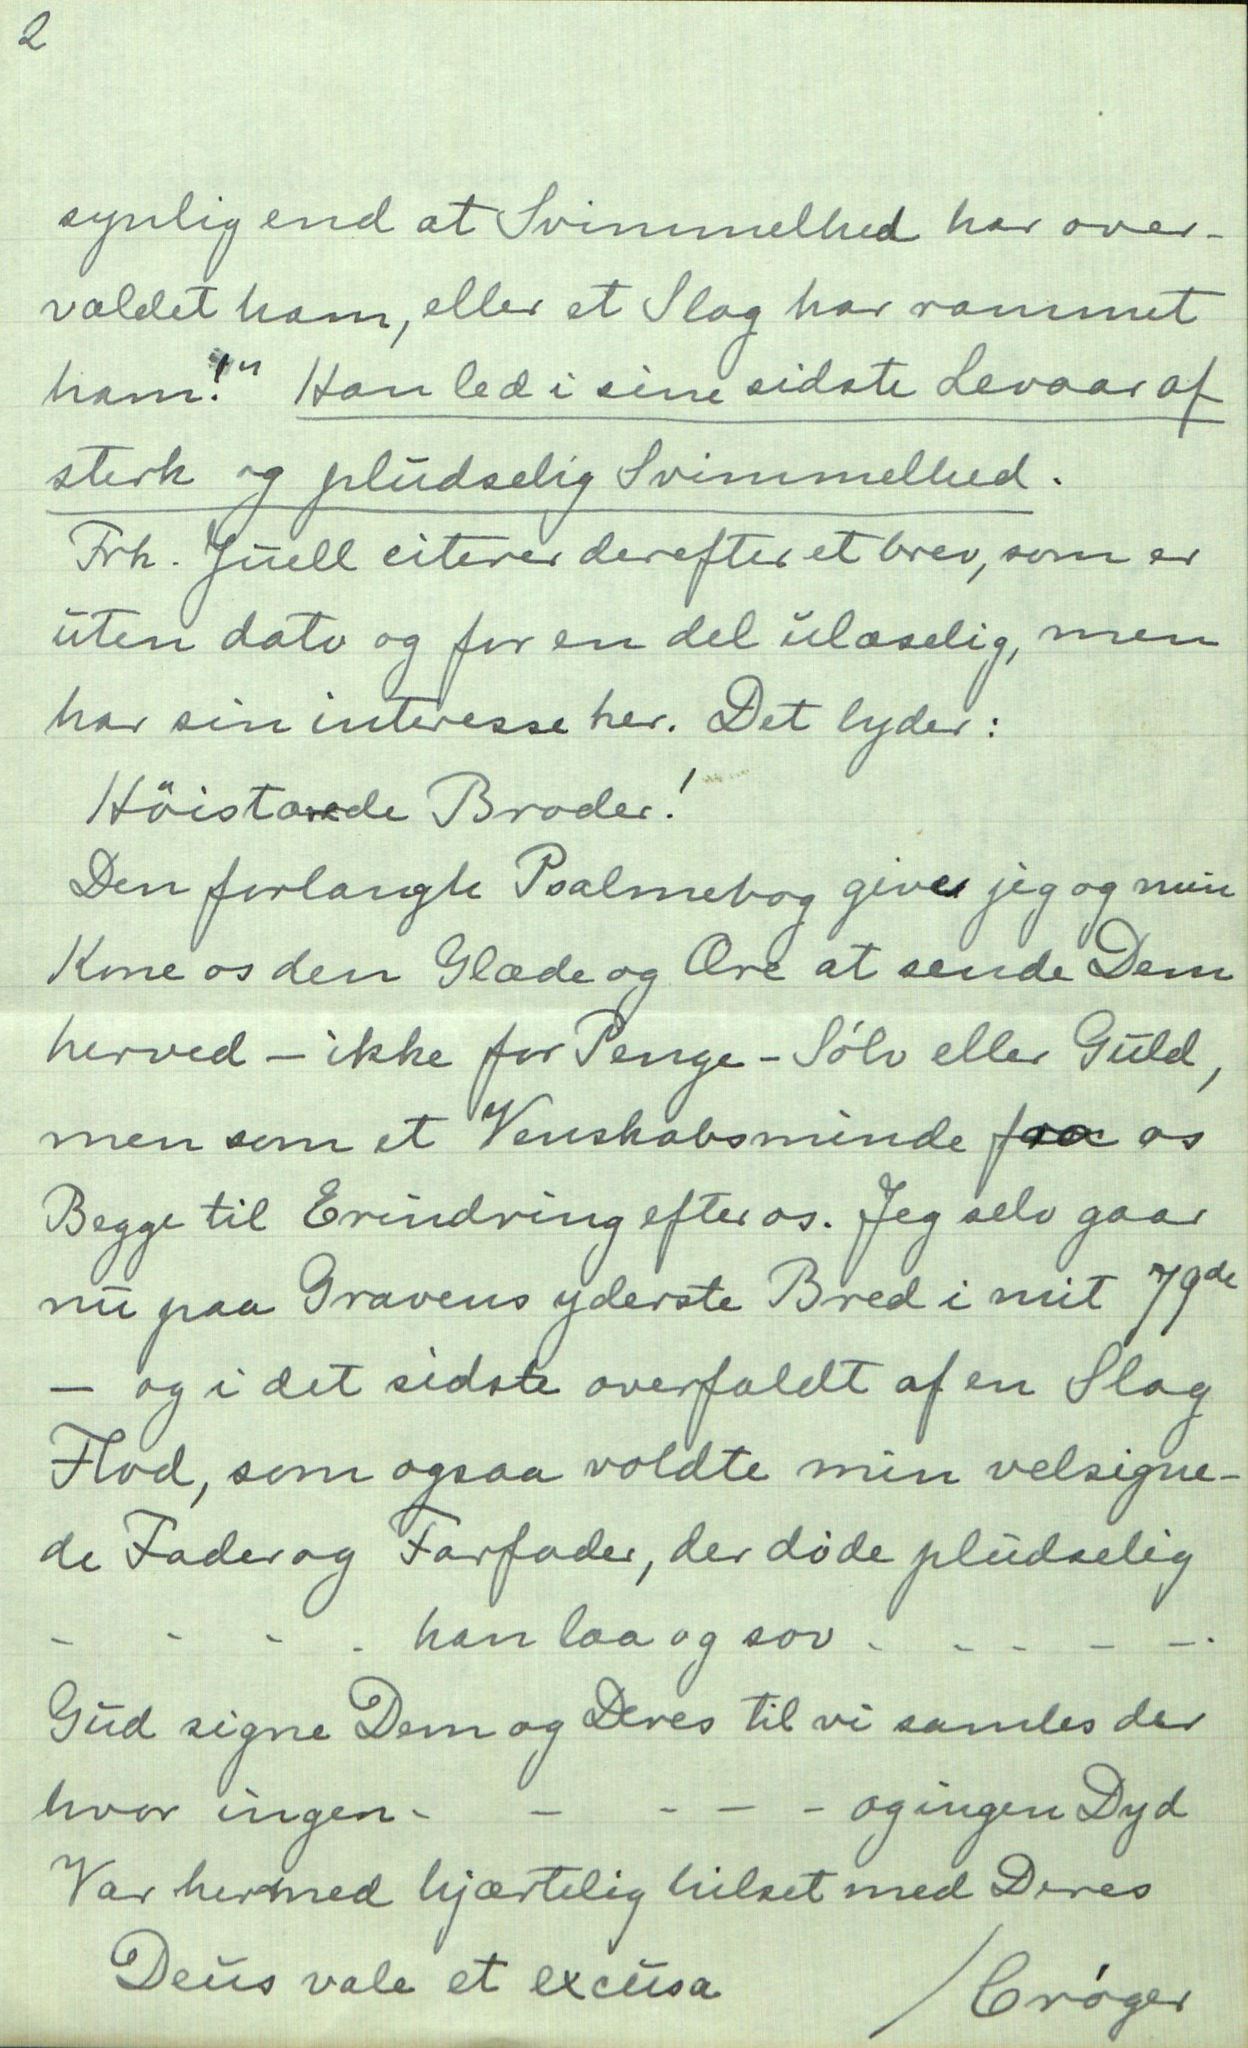 2
synlig end at Svimmelhed har over-
vældet ham, eller et Slag har rammet
ham!" Han led i sine sidste Leveaar af
sterk og pludselig Svimmelhed.
Frk. Juell citerer derefter et brev, som er
uten dato og for en del ulæselig, men
har sin interesse her. Det lyder:
Höistærede Broder!
Den forlangte Psalmebog giver jeg og min
Kone os den Glæde og Ære at sende Dem
herved - ikke for Penge - Sólv eller Guld,
men som et Venskabsminde fra os
Begge til Erindring efter os. Jeg selv gaar
nu paa Gravens yderste Bred i mit 79de
- og i det sidste overfaldt af en Slag
Flod, som ogsaa voldte min velsigne-
de Fader og Farfader, der døde pludselig
- - - - han laa og sov - - - - -
Gud signe Dem og Deres til vi samles der
hvor ingen - - - - - og ingen Dyd
Vær hermed hjærtelig hilset med Deres
Deus vale et excusa /Crøger